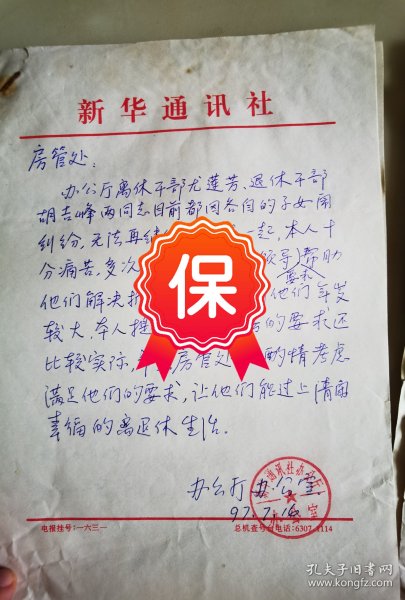 新华通讯社
房管处：
办公厅离休干部尤莲芳、退休干部
胡吉峰两同志目前都因各自的子女闹
纠纷，无法再 一起，本人十
分痛苦，多次 领导）帮助
要求
他们解决 他们年岁
较大，本人 的要求还
比较实际， 房管处 酌情考虑
满足他们的要求，让他们能过上清闲
幸福的离退休生活。
保
办公厅办公室
97.7.16
电报挂号：一六三一
总机查号台电话：6307 1114
孔夫子旧书网
www.kongfz.com